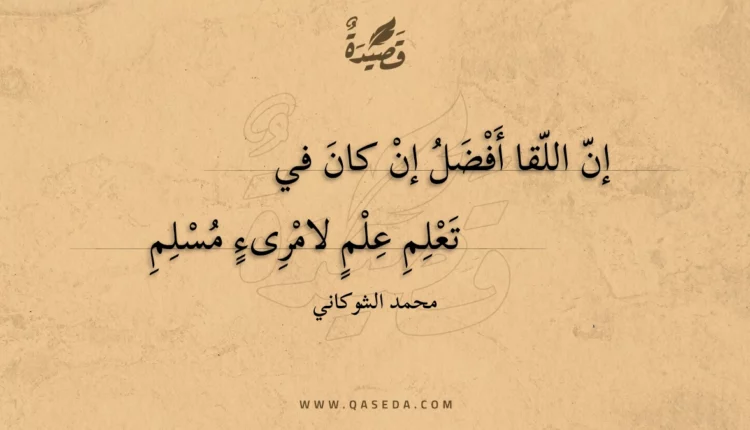 قَصِيْدَةٌ
إنّ اللّقا أَفْضَلُ إنْ كانَ في
تَعْلِمِ عِلْمٍ لامْرِىءٍ مُسْلِمِ
محمد الشوكاني
WWW.QASEDA.COM